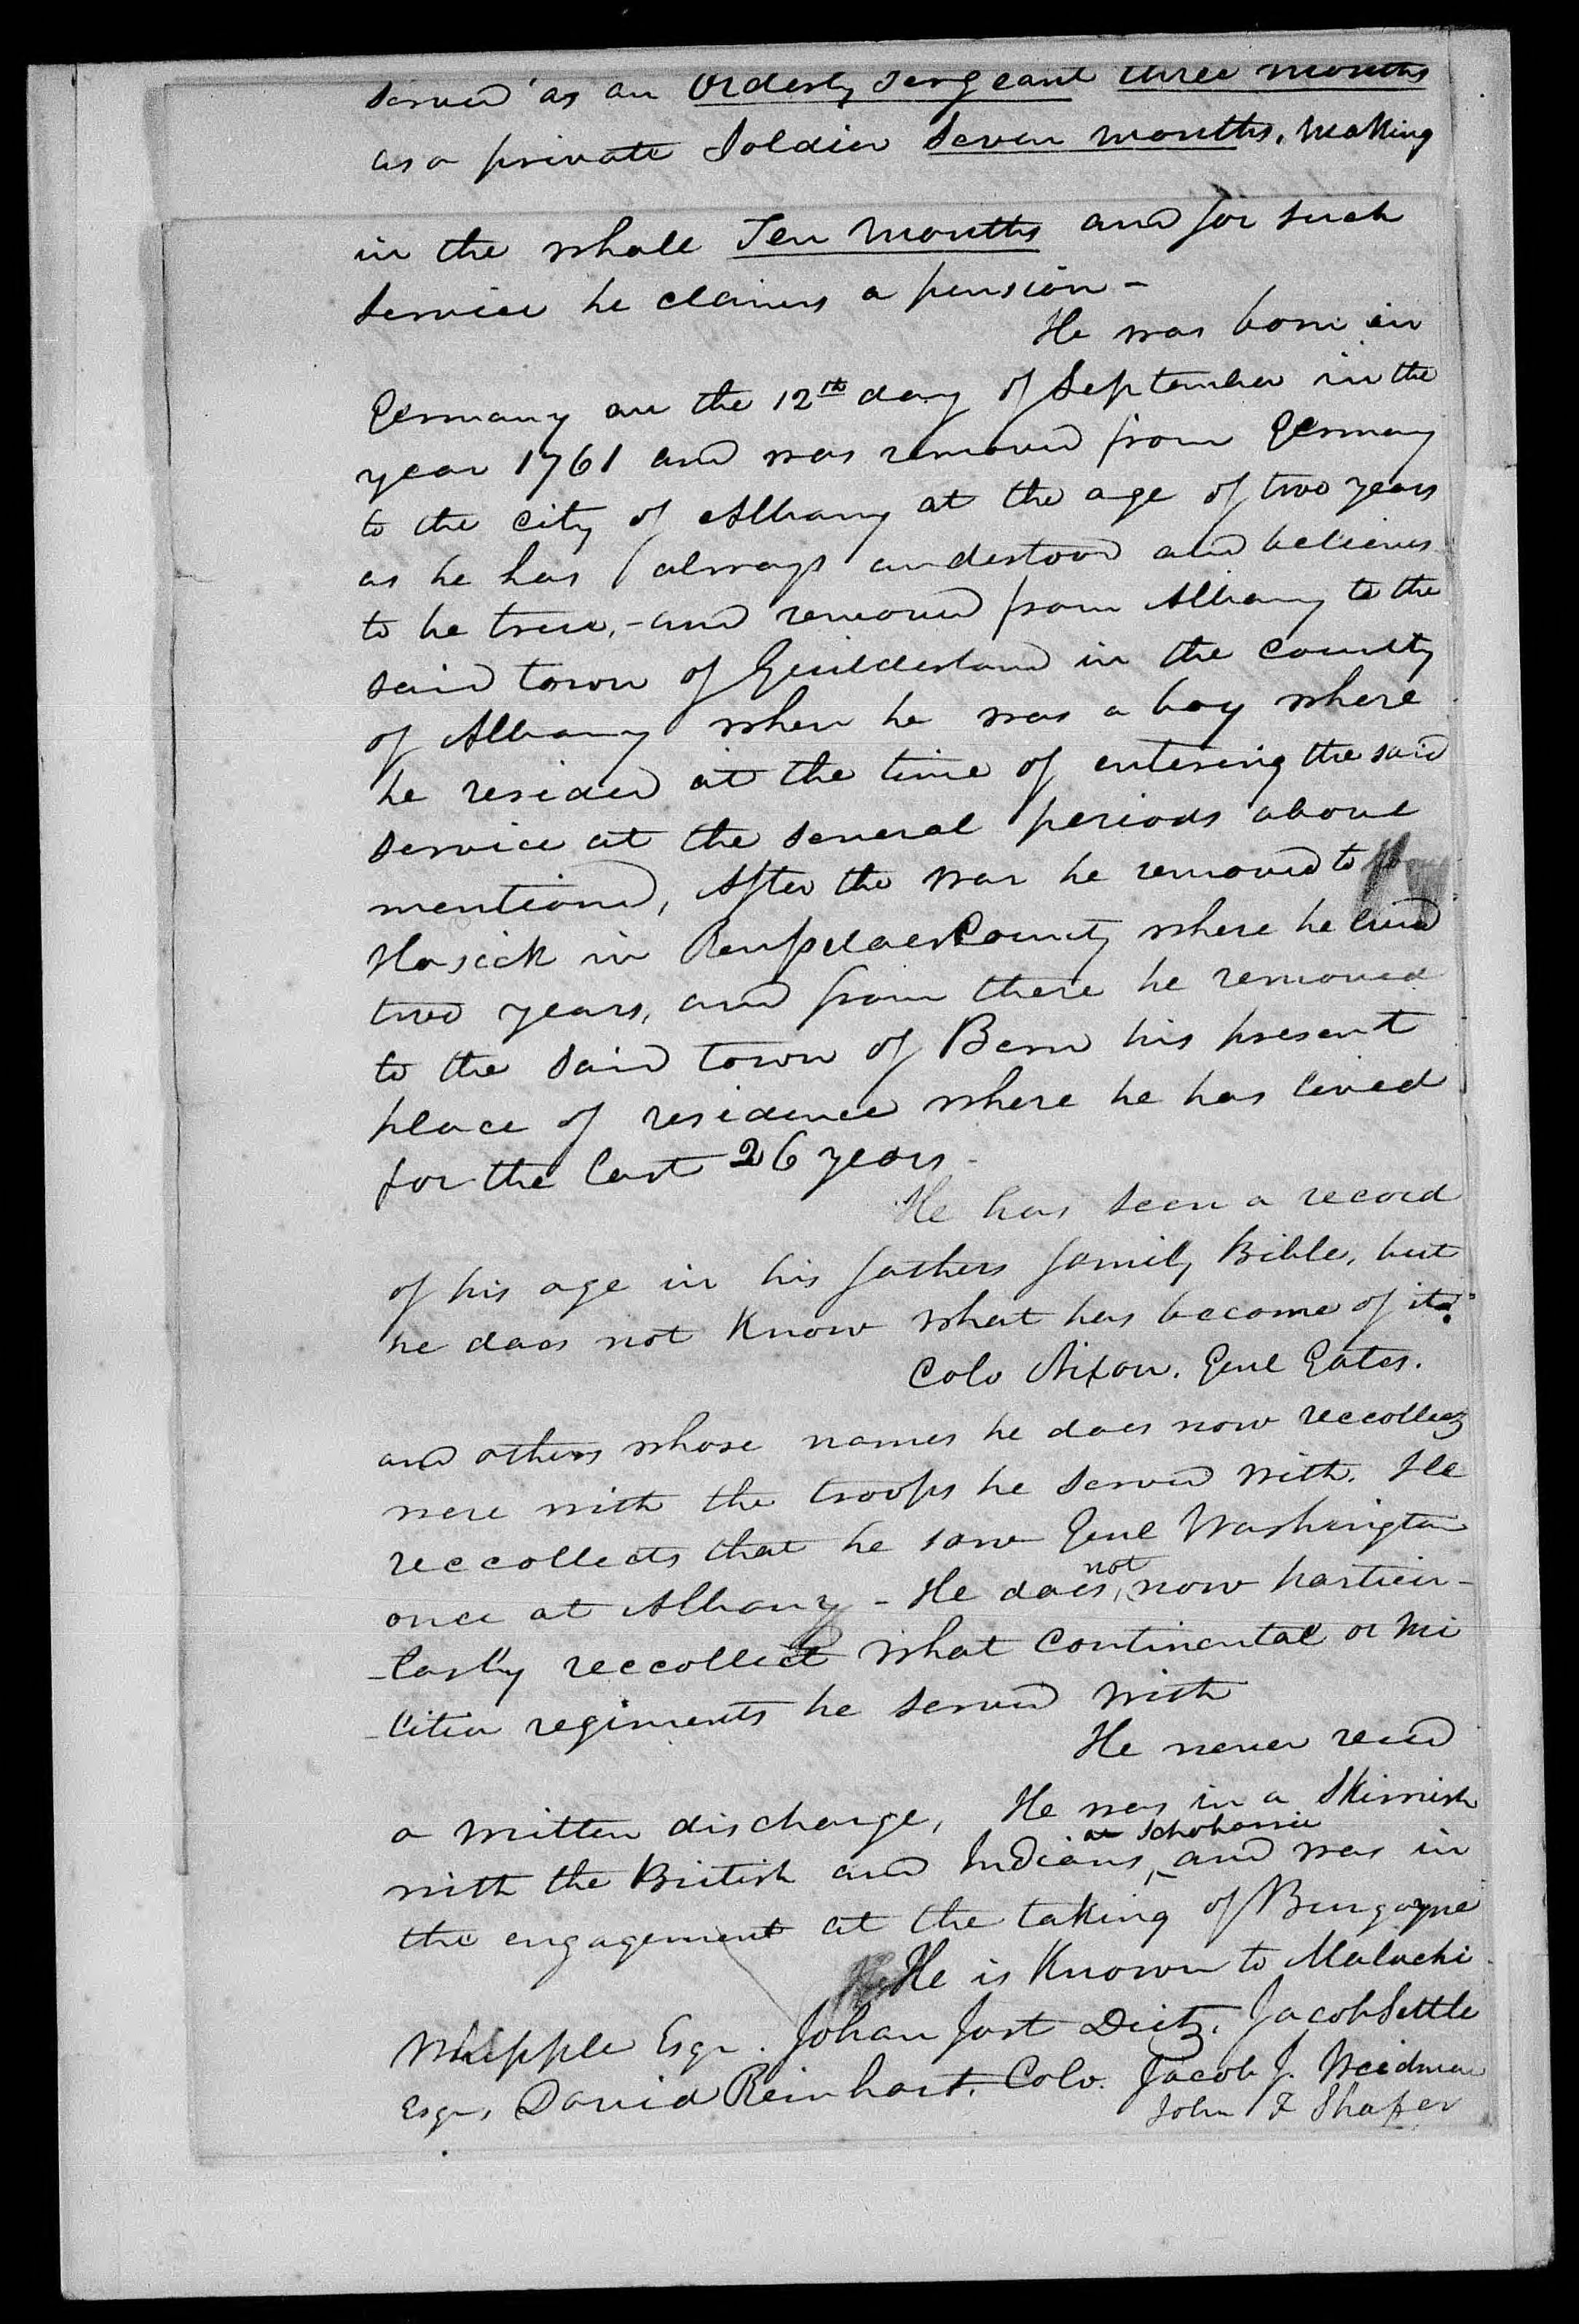 served as an Orderly Sergeant three months
as a private Soldier Seven months, Making
in the whole Ten Months and for such
Service he claims a pension -
He was born in
Germany on the 12th day of September in the
year 1761 and was removed from Germany
to the city of Albany at the age of two years
as he has always understood and believes
to be true, - and removed from Albany to the
said town of Guilderland in the County
of Albany when he was a boy where
he resided at the time of entering the said
service at the several periods above
mentioned, After the war he removed to
Hosick in Rensselaer County where he lived
two years, and from there he removed
to the said town of Bern his present
place of residence where he has lived
for the last 26 years -
He has seen a record
of his age in his fathers family Bible, but
he does not Know what has become of it.
Colo Nixon. Genl Gates.
and others whose names he does now reccollect
were with the troops he served with. He
reccollects that he saw Genl Washington
once at Albany - He does not now particu-
-larly reccollect what Continental or Mi
-litia regiments he served with
He never recd
a written discharge, He was in a Skirmish
with the British and Indians at Schoharrie and was in
the engagement at the taking of Burgoyne
He is Known to Malachi
Whipple Esqr. Johan Jost Dietz, Jacob Settle
Esqr, David Reinhart, Colo. Jacob J. Weidman
John F Shafer